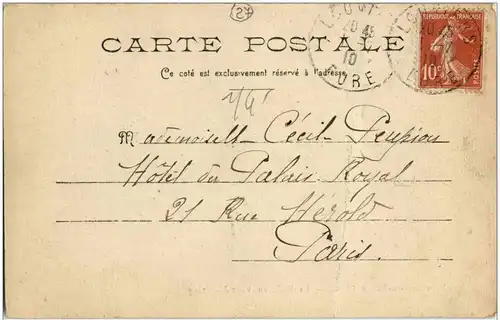 27
CARTE POSTALE
Ce côté est exclusivement réservé à l'adresse
RÉPUBLIQUE FRANÇAISE
10c
POSTES
EURE
10
Mademoiselle Cécil
Hôtel du Palais Royal
21 Rue Hérold
Paris.